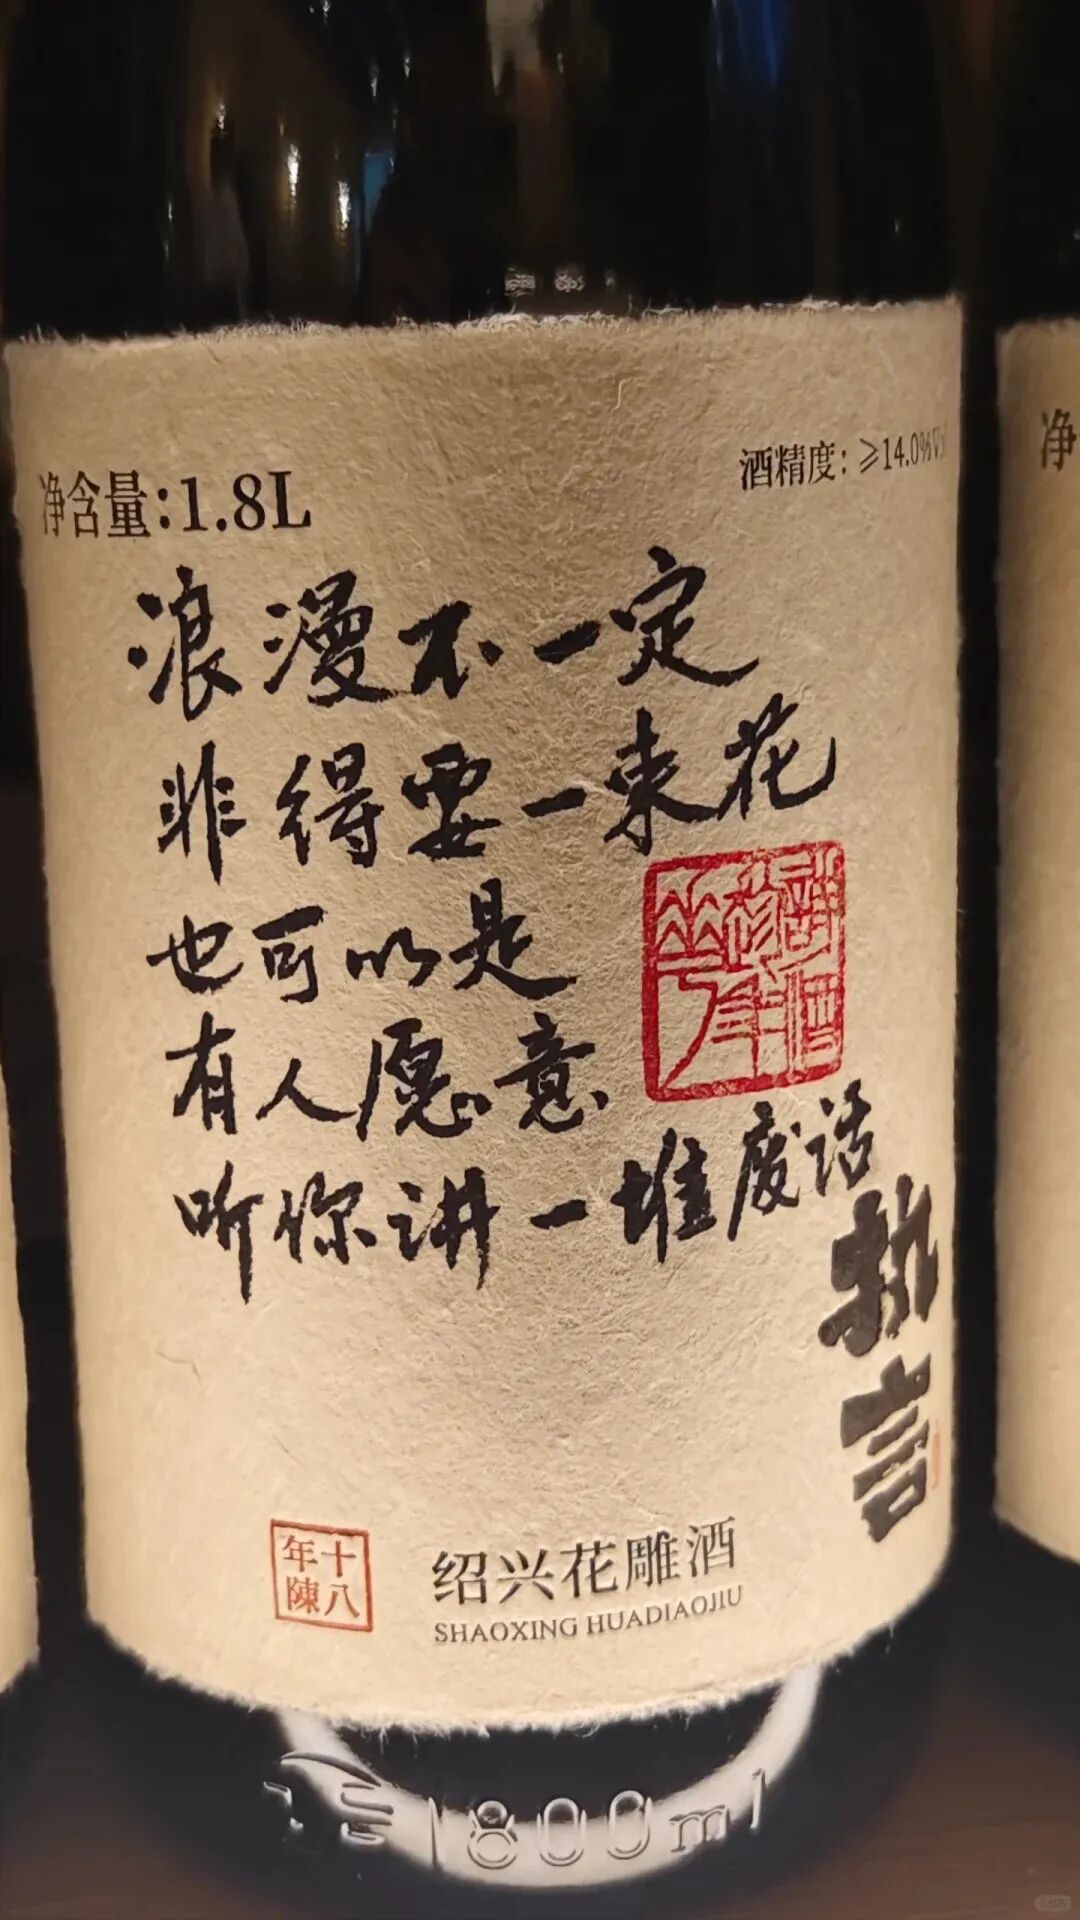 净含量:1.8L
酒精度:≥14.0%
浪漫不一定
非得要一束花
也可以是
有人愿意
听你讲一堆废话
执言
十八年陳
绍兴花雕酒
SHAOXING HUADIAOJIU
1800ml
净